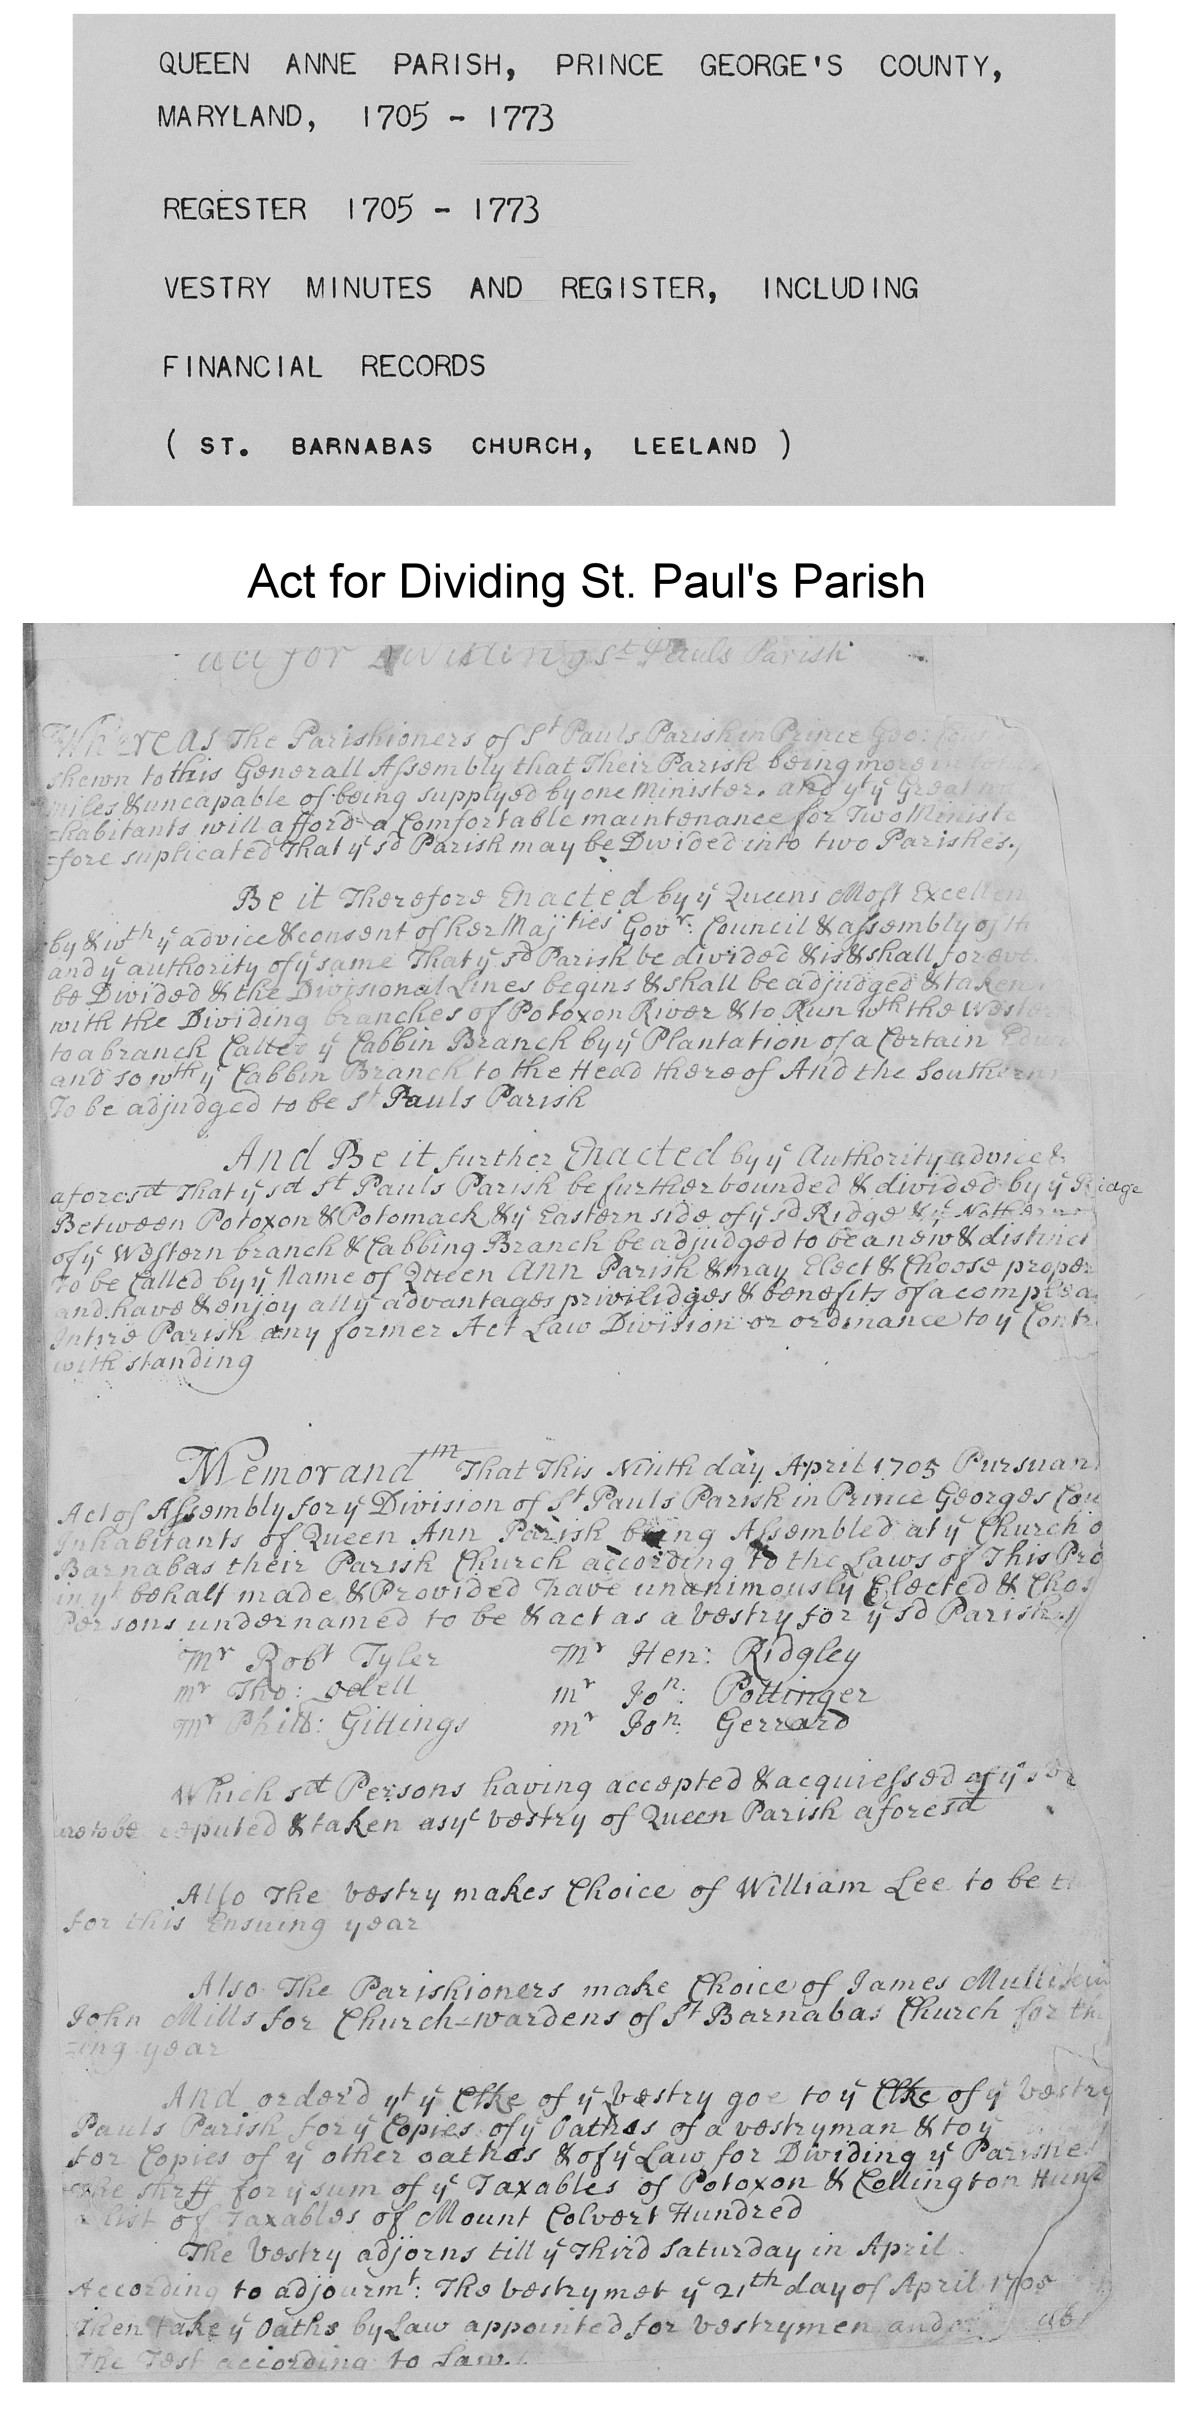 QUEEN ANNE PARISH, PRINCE GEORGE'S COUNTY,
MARYLAND, 1705 - 1773
REGESTER 1705 - 1773
VESTRY MINUTES AND REGISTER, INCLUDING
FINANCIAL RECORDS
( ST. BARNABAS CHURCH, LEELAND )
Act for Dividing St. Paul's Parish
act for Dividing St Pauls Parish
Whereas The Parishioners of St Pauls Parish in Prince
shewn to this Generall Assembly that Their Parish being more in
miles & uncapable of being supplyed by one Minister. and yt ye Great
=habitants will afford a Comfortable maintenance for Two Ministe
=fore suplicated That ye sd Parish may be Divided into two Parishes.
Be it Therefore Enacted by ye Queens Most Excellent
by & wth ye advice & consent of her Majties Govr: Council & assembly of th
and ye authority of ye same That ye sd Parish be divided & is & shall for eve
be Divided & the Divisional Lines begins & shall be adjudged & taken
with the Dividing branches of Potoxon River & to Run wth the Wester
to a branch Calted ye Cabbin Branch by ye Plantation of a Certain
and so wth ye Cabbin Branch to the Head there of And the Southern
To be adjudged to be St Pauls Parish
And Be it further Enacted by ye Authority advice &
aforesd That ye sd St Pauls Parish be further bounded & divided by ye Ridge
Between Potoxon & Potomack & ye Eastern side of ye sd Ridge & ye Nothern
of ye Western branch & Cabbing Branch be adjudged to be a new & distinct
To be Called by ye Name of Queen Ann Parish & may Elect & Choose proper
and have & enjoy all ye advantages priviledges & benefits of a complea
Intire Parish any former Act Law Division or ordinance to ye Contr
with standing
Memorandm That This Ninth day April 1705 Pursuan
Act of Assembly for ye Division of St Pauls Parish in Prince Georges Cou
Inhabitants of Queen Ann Parish being Assembled at ye Church o
Barnabas their Parish Church according to the Laws of This Pro
in yt behalf made & Provided have unanimously Elected & Chos
Persons undernamed to be & act as a vestry for ye sd Parish
Mr Robt Tyler Mr Hen: Ridgley
mr Tho: Odell mr Jon: Pottinger
Mr Phill: Gittings mr Jon: Gerrard
Which sd Persons having accepted & acquiessed of ye
are to be reputed & taken as ye vestry of Queen Parish aforesd
Also The vestry makes Choice of William Lee to be
for this Ensuing year
Also The Parishioners make Choice of James Mullikin
John Mills for Church-wardens of St Barnabas Church for th
=ing year
And order'd yt ye Clke of ye Vestry goe to ye Clke of ye Vestry
Pauls Parish for ye Copies of ye Oathes of a vestryman & to ye
for Copies of ye other oathes & of ye Law for Dividing ye Parishes
the shrff for ye sum of ye Taxables of Potoxon & Collington Hund
a list of Taxables of Mount Colvert Hundred
The Vestry adjorns till ye Third Saturday in April
According to adjourmt: The vestry met ye 21th day of April 1705
Then take ye Oaths by Law appointed for vestrymen and
The Test according to Law.